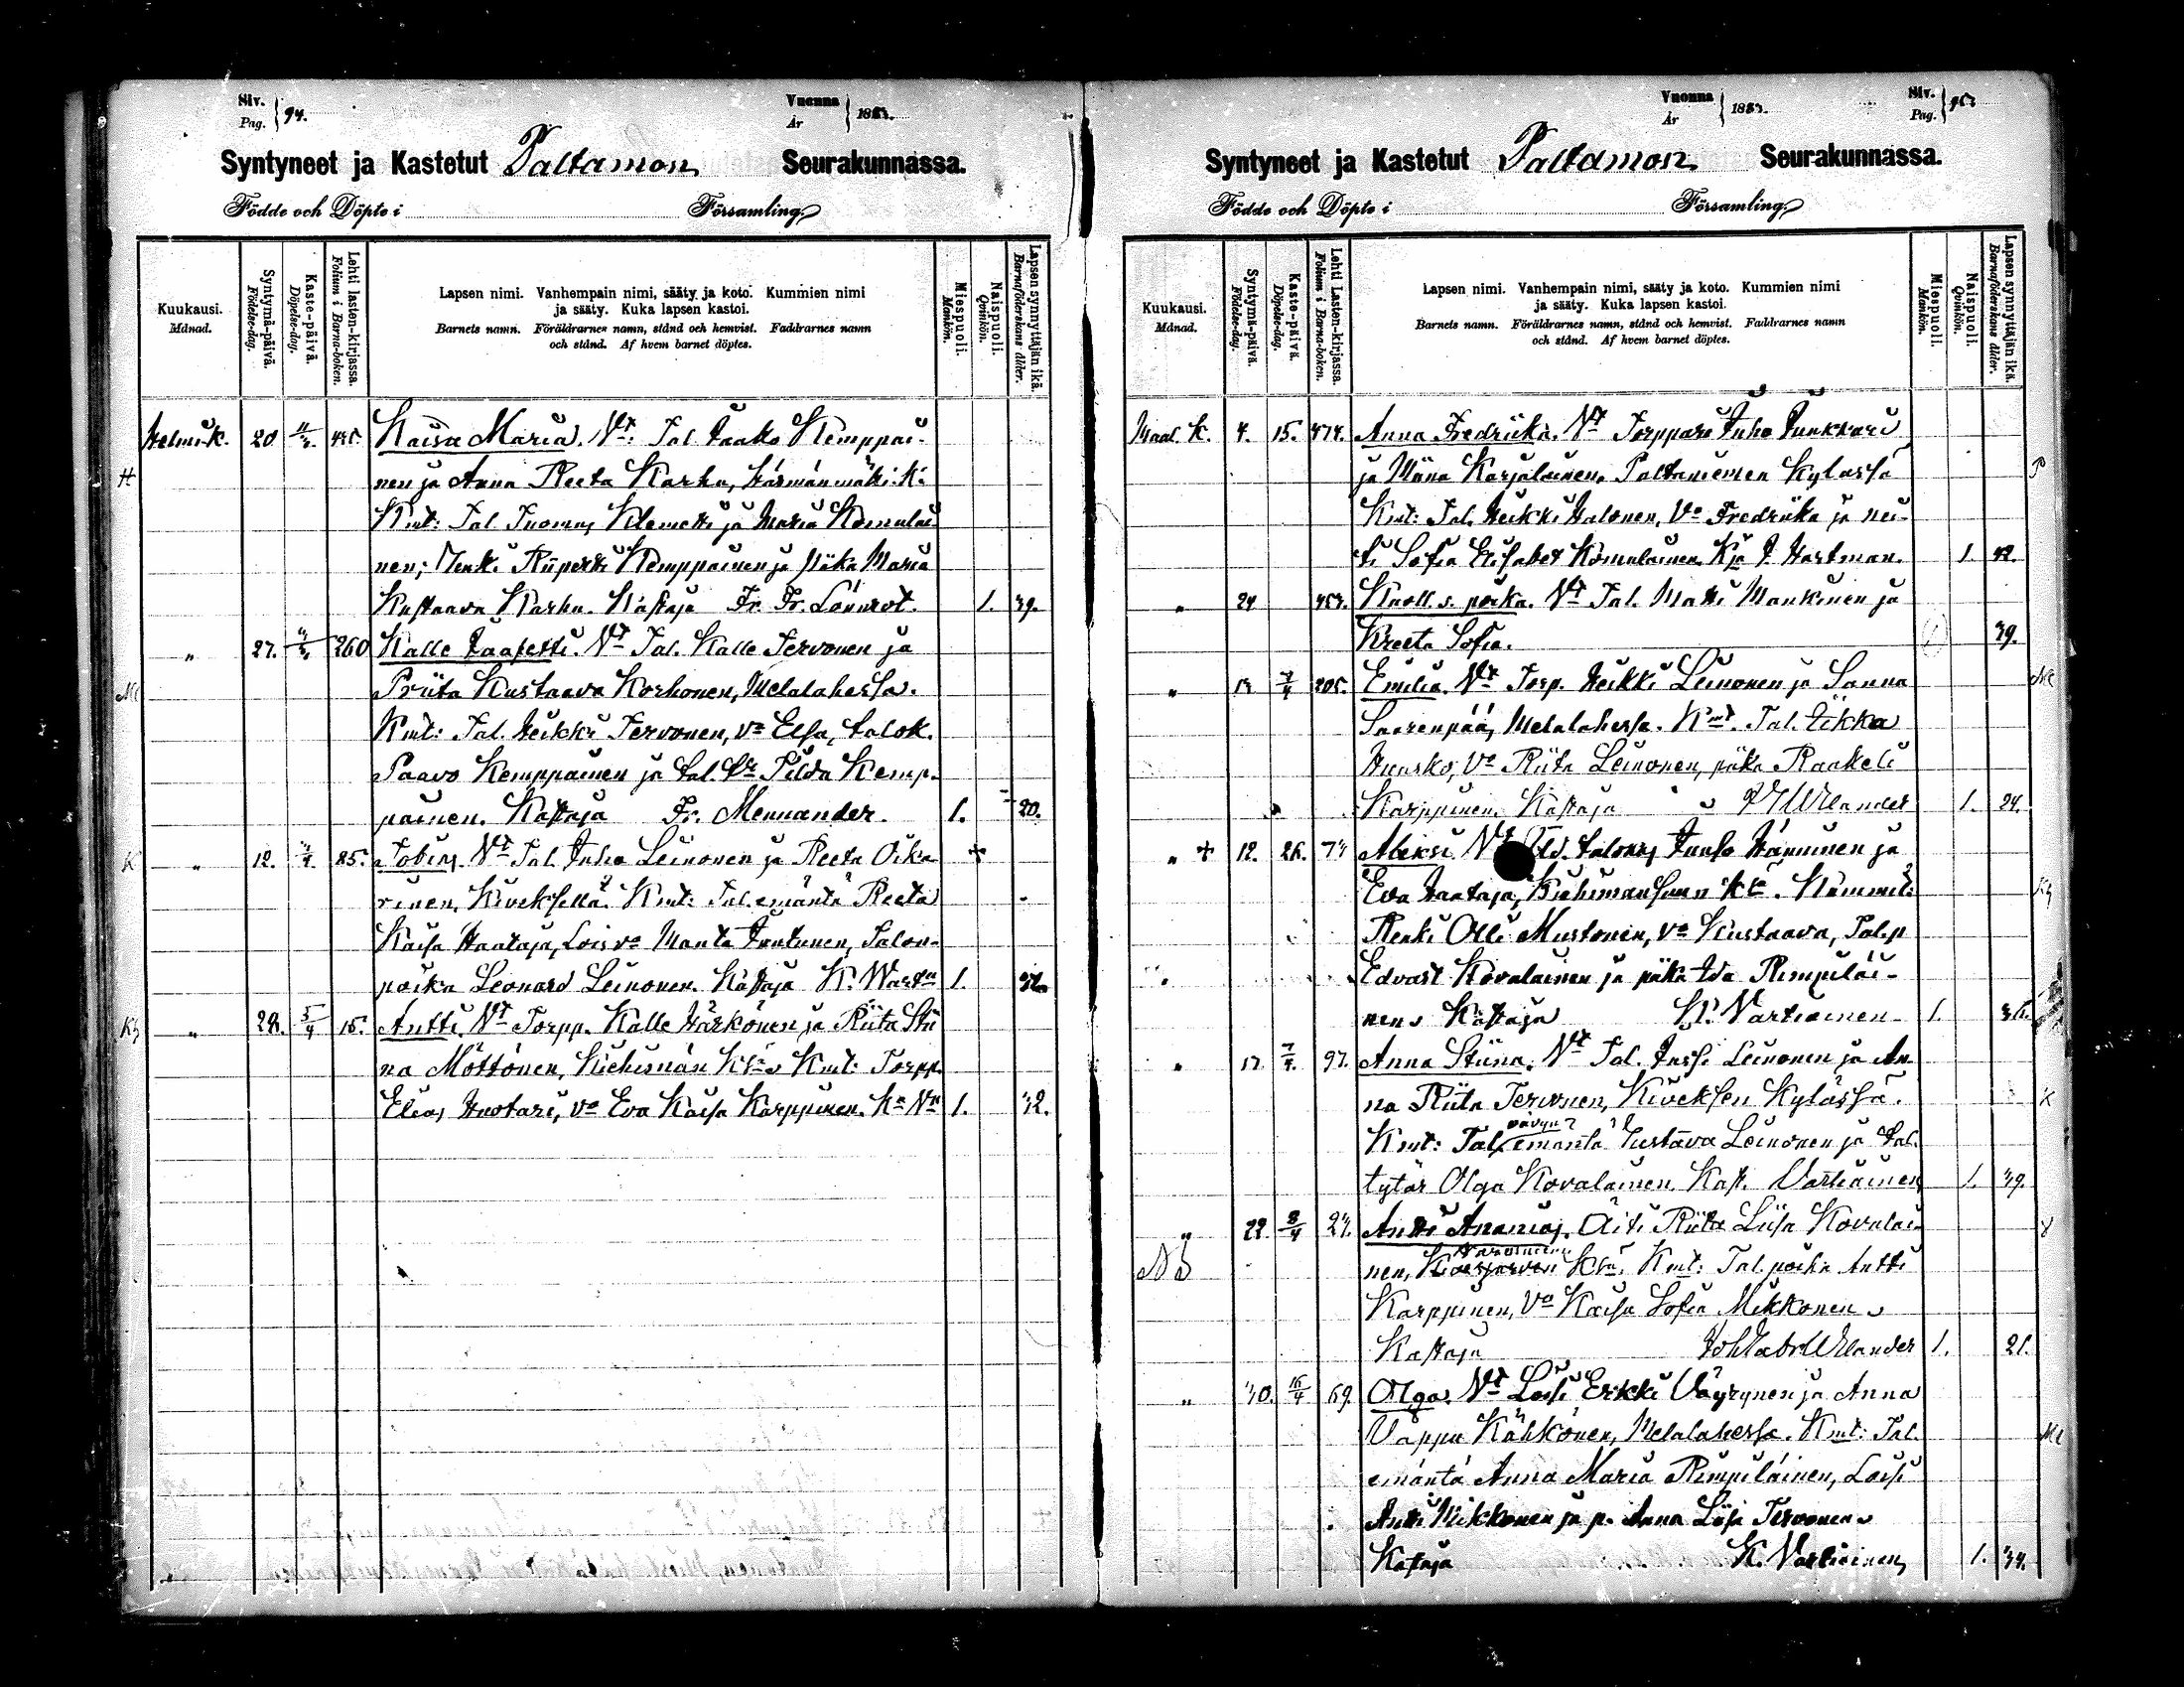 Siv. Pag. 94. Vuonna År 188
Syntyneet ja Kastetut Paltamon Seurakunnassa.
Födde och Döpte i Församling
Kuukausi. Månad.
Syntymä-päivä. Födelse-dag.
Kaste-päivä. Döpelse-dag.
Lehti lasten-kirjassa. Folium i Barna-boken.
Lapsen nimi. Vanhempain nimi, sääty ja koto. Kummien nimi
ja sääty. Kuka lapsen kastoi.
Barnets namn. Föräldrarnes namn, stånd och hemvist. Faddrarnes namn
och stånd. Af hvem barnet döptes.
Miespuoli. Mankön.
Naispuoli. Qvinkön.
Lapsen synnyttäjän ikä. Barnaföderskans ålder.
Helmi-k. 20 Kaisa Maria. Vt: Tal. Jaako Kemppai-
H nen ja Anna Reeta Karhu, Härmänmäki. K.
Kmt: Tal. Tuomas Klemetti ja Maria Komulai
nen; Renki Ruperti Kemppainen ja piika Maria
Kustaava Karhu. Kastaja Fr. Fr. Lönnrot. 1. 39.
„ 27. 260 Kalle Taavetti. Vt Tal. Kalle Tervonen ja
Ml Priita Kustaava Korhonen, Melalahessa.
Kmt: Tal. Heikki Tervonen, Vo Elsa, talok.
Paavo Kemppainen ja tal. Hilda Kemp-
painen. Kastaja Fr. Mennander. 1. 20.
K „ 12. 85. Tobias. Vt Tal. Juho Leinonen ja Reeta Oika
rinen, Kiveksellä. Kmt: Tal. emäntä Reeta
Kaisa Haataja, Lois vo Manta Juntunen, Talon-
poika Leonard Leinonen. Kastaja K. Wartn 1.
Kh „ 28. 5/4 15. Antti. Vt Torpp. Kalle Härkönen ja Riita Stii
na Möttönen, Kiehimän Klä. Kmt: Torpp.
Elias Huotari, vo Eva Kaisa Karppinen. Ka Vn 1. 32.
Vuonna År 188 Siv. Pag. 95
Syntyneet ja Kastetut Paltamon Seurakunnassa.
Födde och Döpte i Församling
Kuukausi. Månad.
Syntymä-päivä. Födelse-dag.
Kaste-päivä. Döpelse-dag.
Lehti Lasten-kirjassa. Folium i Barna-boken.
Lapsen nimi. Vanhempain nimi, sääty ja koto. Kummien nimi
ja sääty. Kuka lapsen kastoi.
Barnets namn. Föräldrarnes namn, stånd och hemvist. Faddrarnes namn
och stånd. Af hvem barnet döptes.
Miespuoli. Mankön.
Naispuoli. Qvinkön.
Lapsen synnyttäjän ikä. Barnaföderskans ålder.
Maal. K. 4. 15. 474. Anna Fredriika. Vt Torppari Juho Junkkari
ja Miina Karjalainen, Paltaniemen Kylässä P
Kmt: Tal. Heikki Halonen, Vo Fredriika ja nei-
ti Sofia Elisabet Komulainen. Kja Hartman. 1. 42.
„ 24 Kuoll. s. poika. Vt Tal. Matti Mankinen ja
Kreeta Sofia. 39.
„ 7/4 205. Emilia. Vt Torp. Heikki Leinonen ja Sanna Ml
Saarenpää, Melalahessa. Kmt. Tal. Eikka
Huusko, Vo Riita Leinonen, piika Raakeli
Karppinen. Kastaja Wlander 1. 24.
„ + 12. 26. Aleksi Vt talon, Juuso Hänninen ja
Eva Haataja, Kiehimänsuun Klä. Kummit: Kh
Renki Olli Mustonen, vo Kustaava, Tal.p
Edvart Kovalainen ja piika Ida Rimpiläi-
nen. Kastaja K. Vartiainen 1.
„ 17. 7/4. 97. Anna Stiina. Vt Tal. Jussi Leinonen ja An
na Riita Tervonen, Kiveksen Kylässä. K
Kmt: Tal. vävyn emäntä Kustava Leinonen ja tal.
tytär Olga Kovalainen. Kast. Vartiainen 1. 39.
„ 22. 8/4 Antti Ananias. Äiti Riita Liisa Kovalai
NB nen, Klä. Kmt: Tal. poika Antti
Karppinen, Vo Kaisa Sofia Mikkonen
Kastaja Wlander 1. 21.
„ 30. 15/4 69. Olga. Vt Loisi Erkki Väyrynen ja Anna
Vappu Kähkönen, Melalahessa. Kmt: Tal. Ml
emäntä Anna Maria Rimpiläinen, Loisi
Antti Mikkonen ja p. Anna Liisa Tervonen
Kastaja K. Vartiainen, 1. 34.